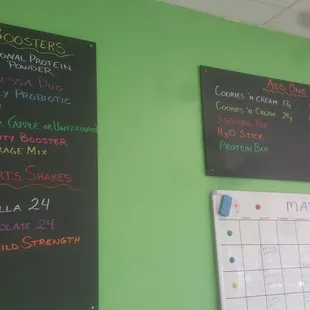 BOOSTERS
ONAL PROTEIN
POWDER
DUO
LY PROBIOTIC
(APPLE OR UNFLAVORED
TY BOOSTER
RAGE MIX
TS SHAKES
LLA 24
OLATE 24
ILD STRENGTH
ADD ONS
COOKIES 'N CREAM 17g
COOKIES 'N CREAM 24g
H2O STICK
PROTEIN BAR
MA